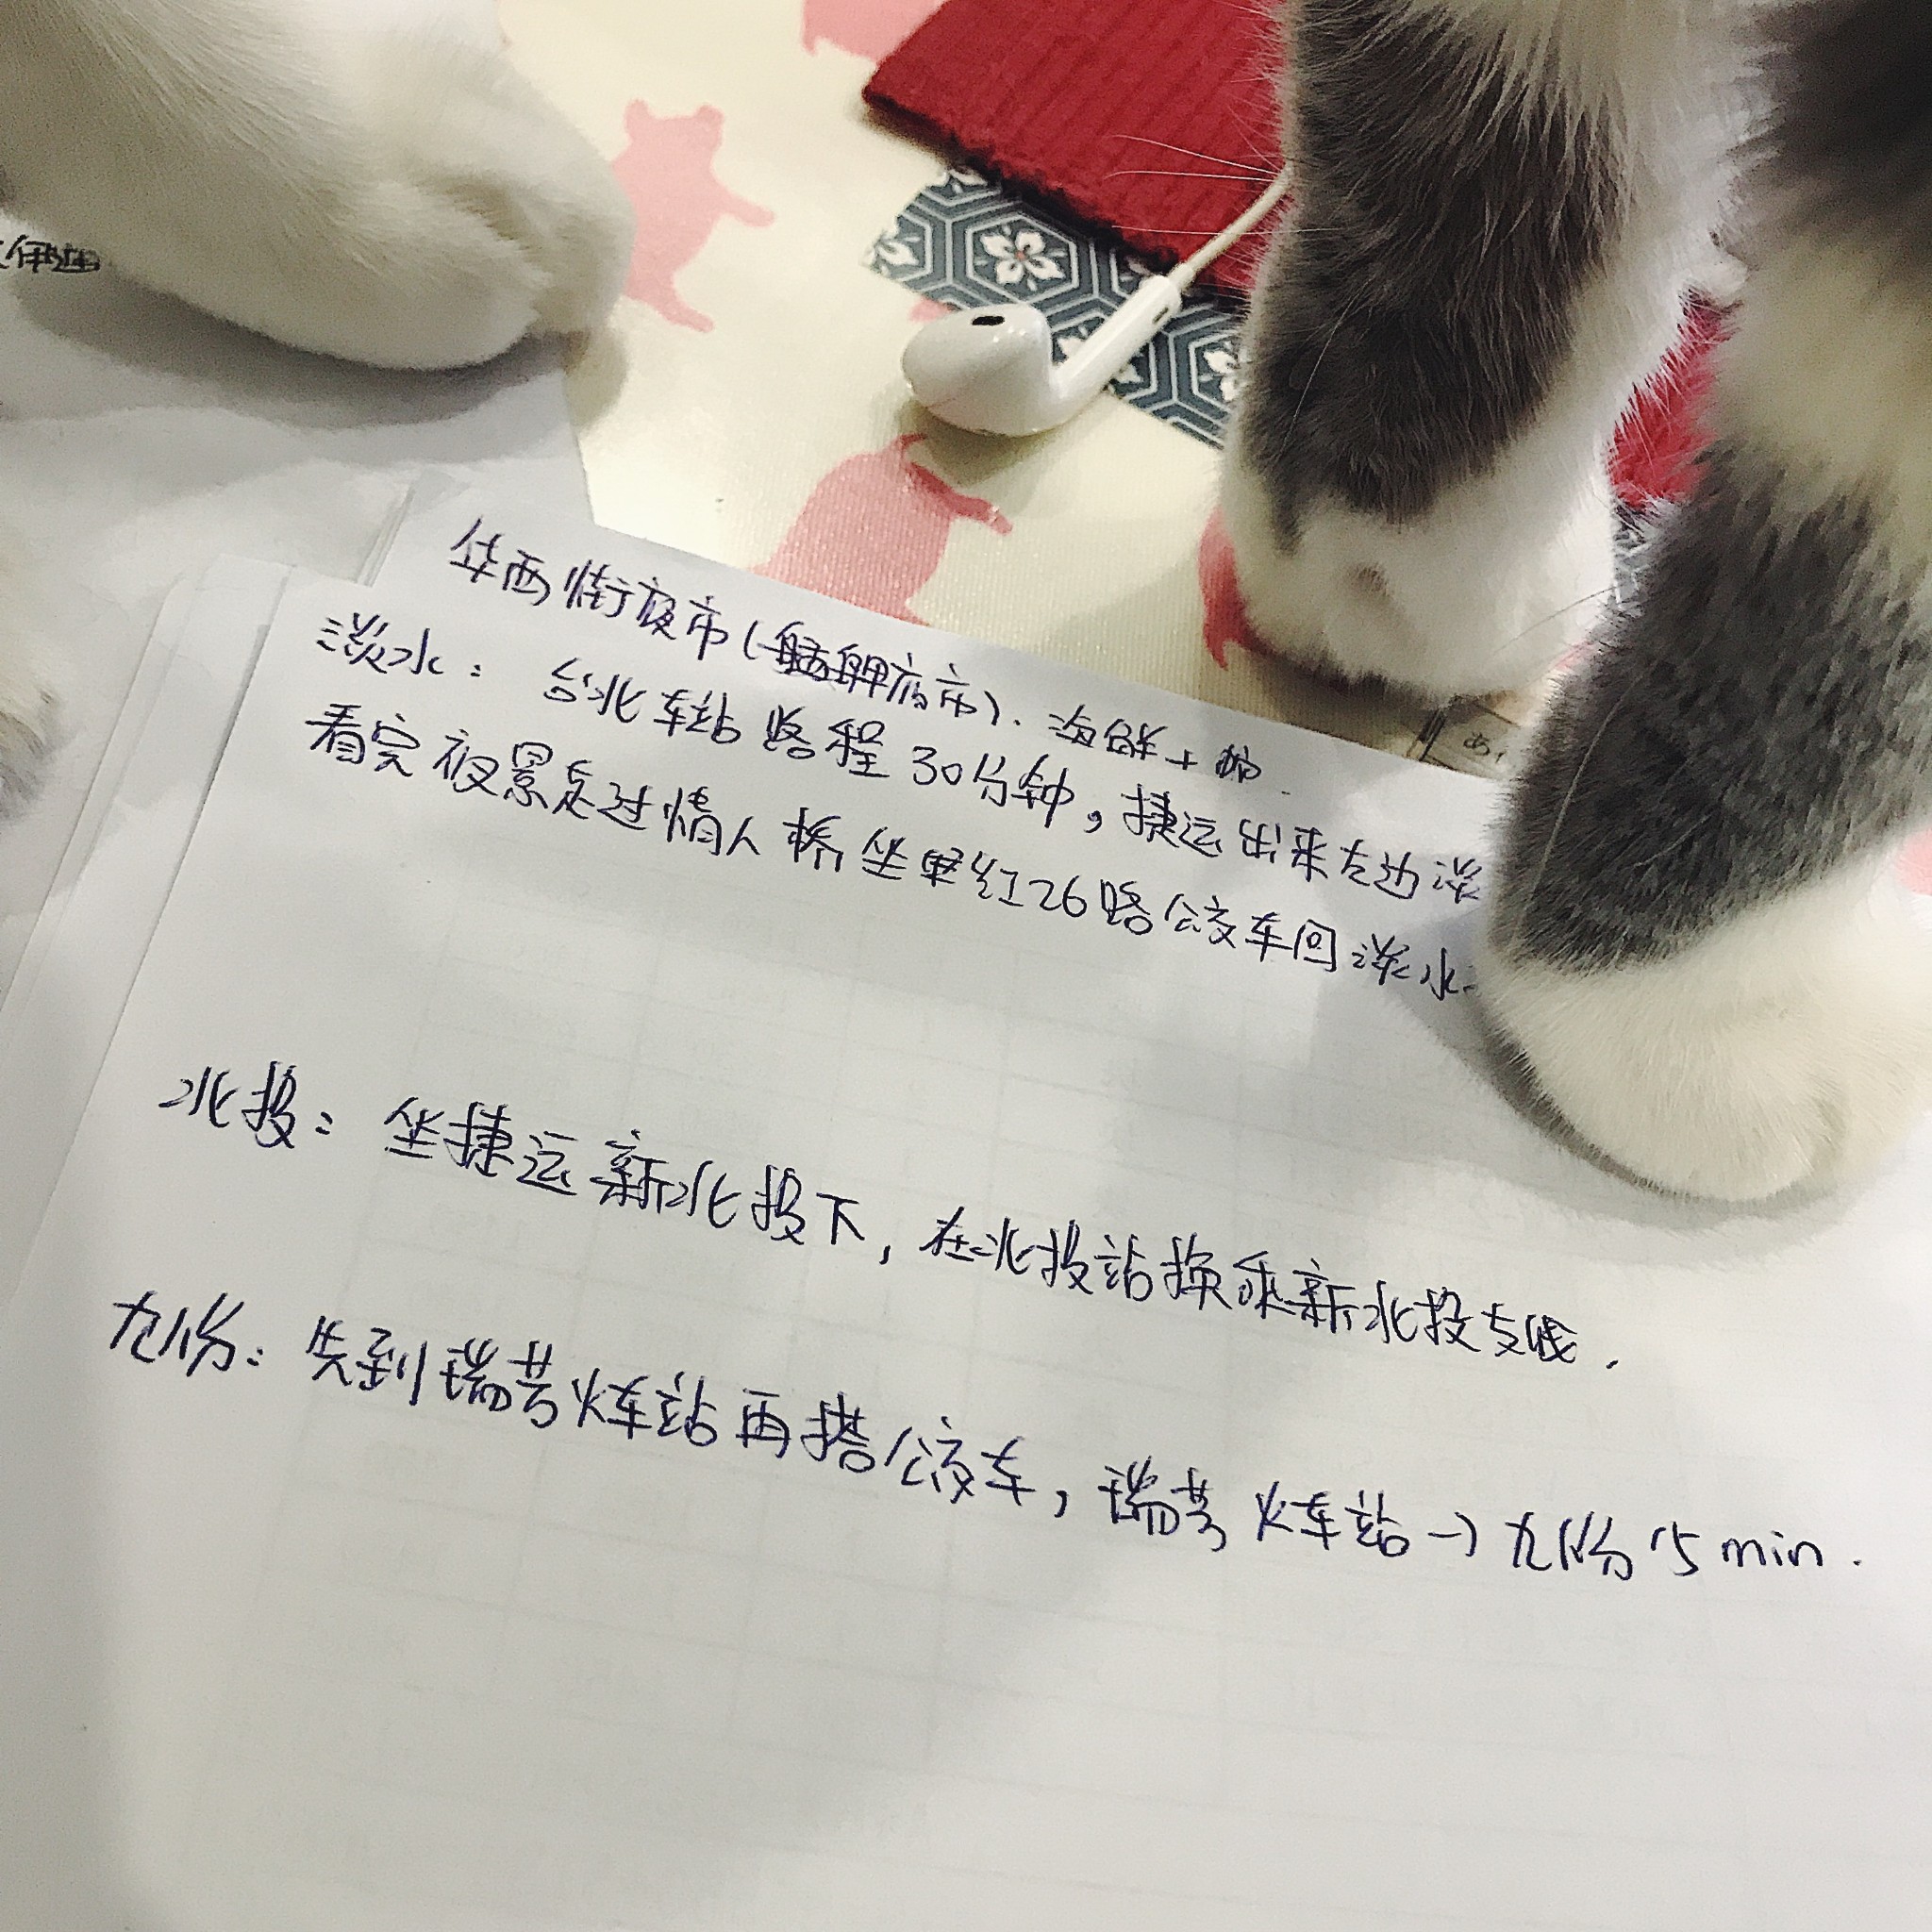 华西街夜市(艋舺夜市). 海鲜+
淡水: 台北车站路程30分钟,捷运出来左边淡
看完夜景走过情人桥坐红26路公交车回淡水
北投: 坐捷运新北投下,在北投站换乘新北投支线.
九份: 先到瑞芳火车站再搭公交车,瑞芳火车站→九份15min.